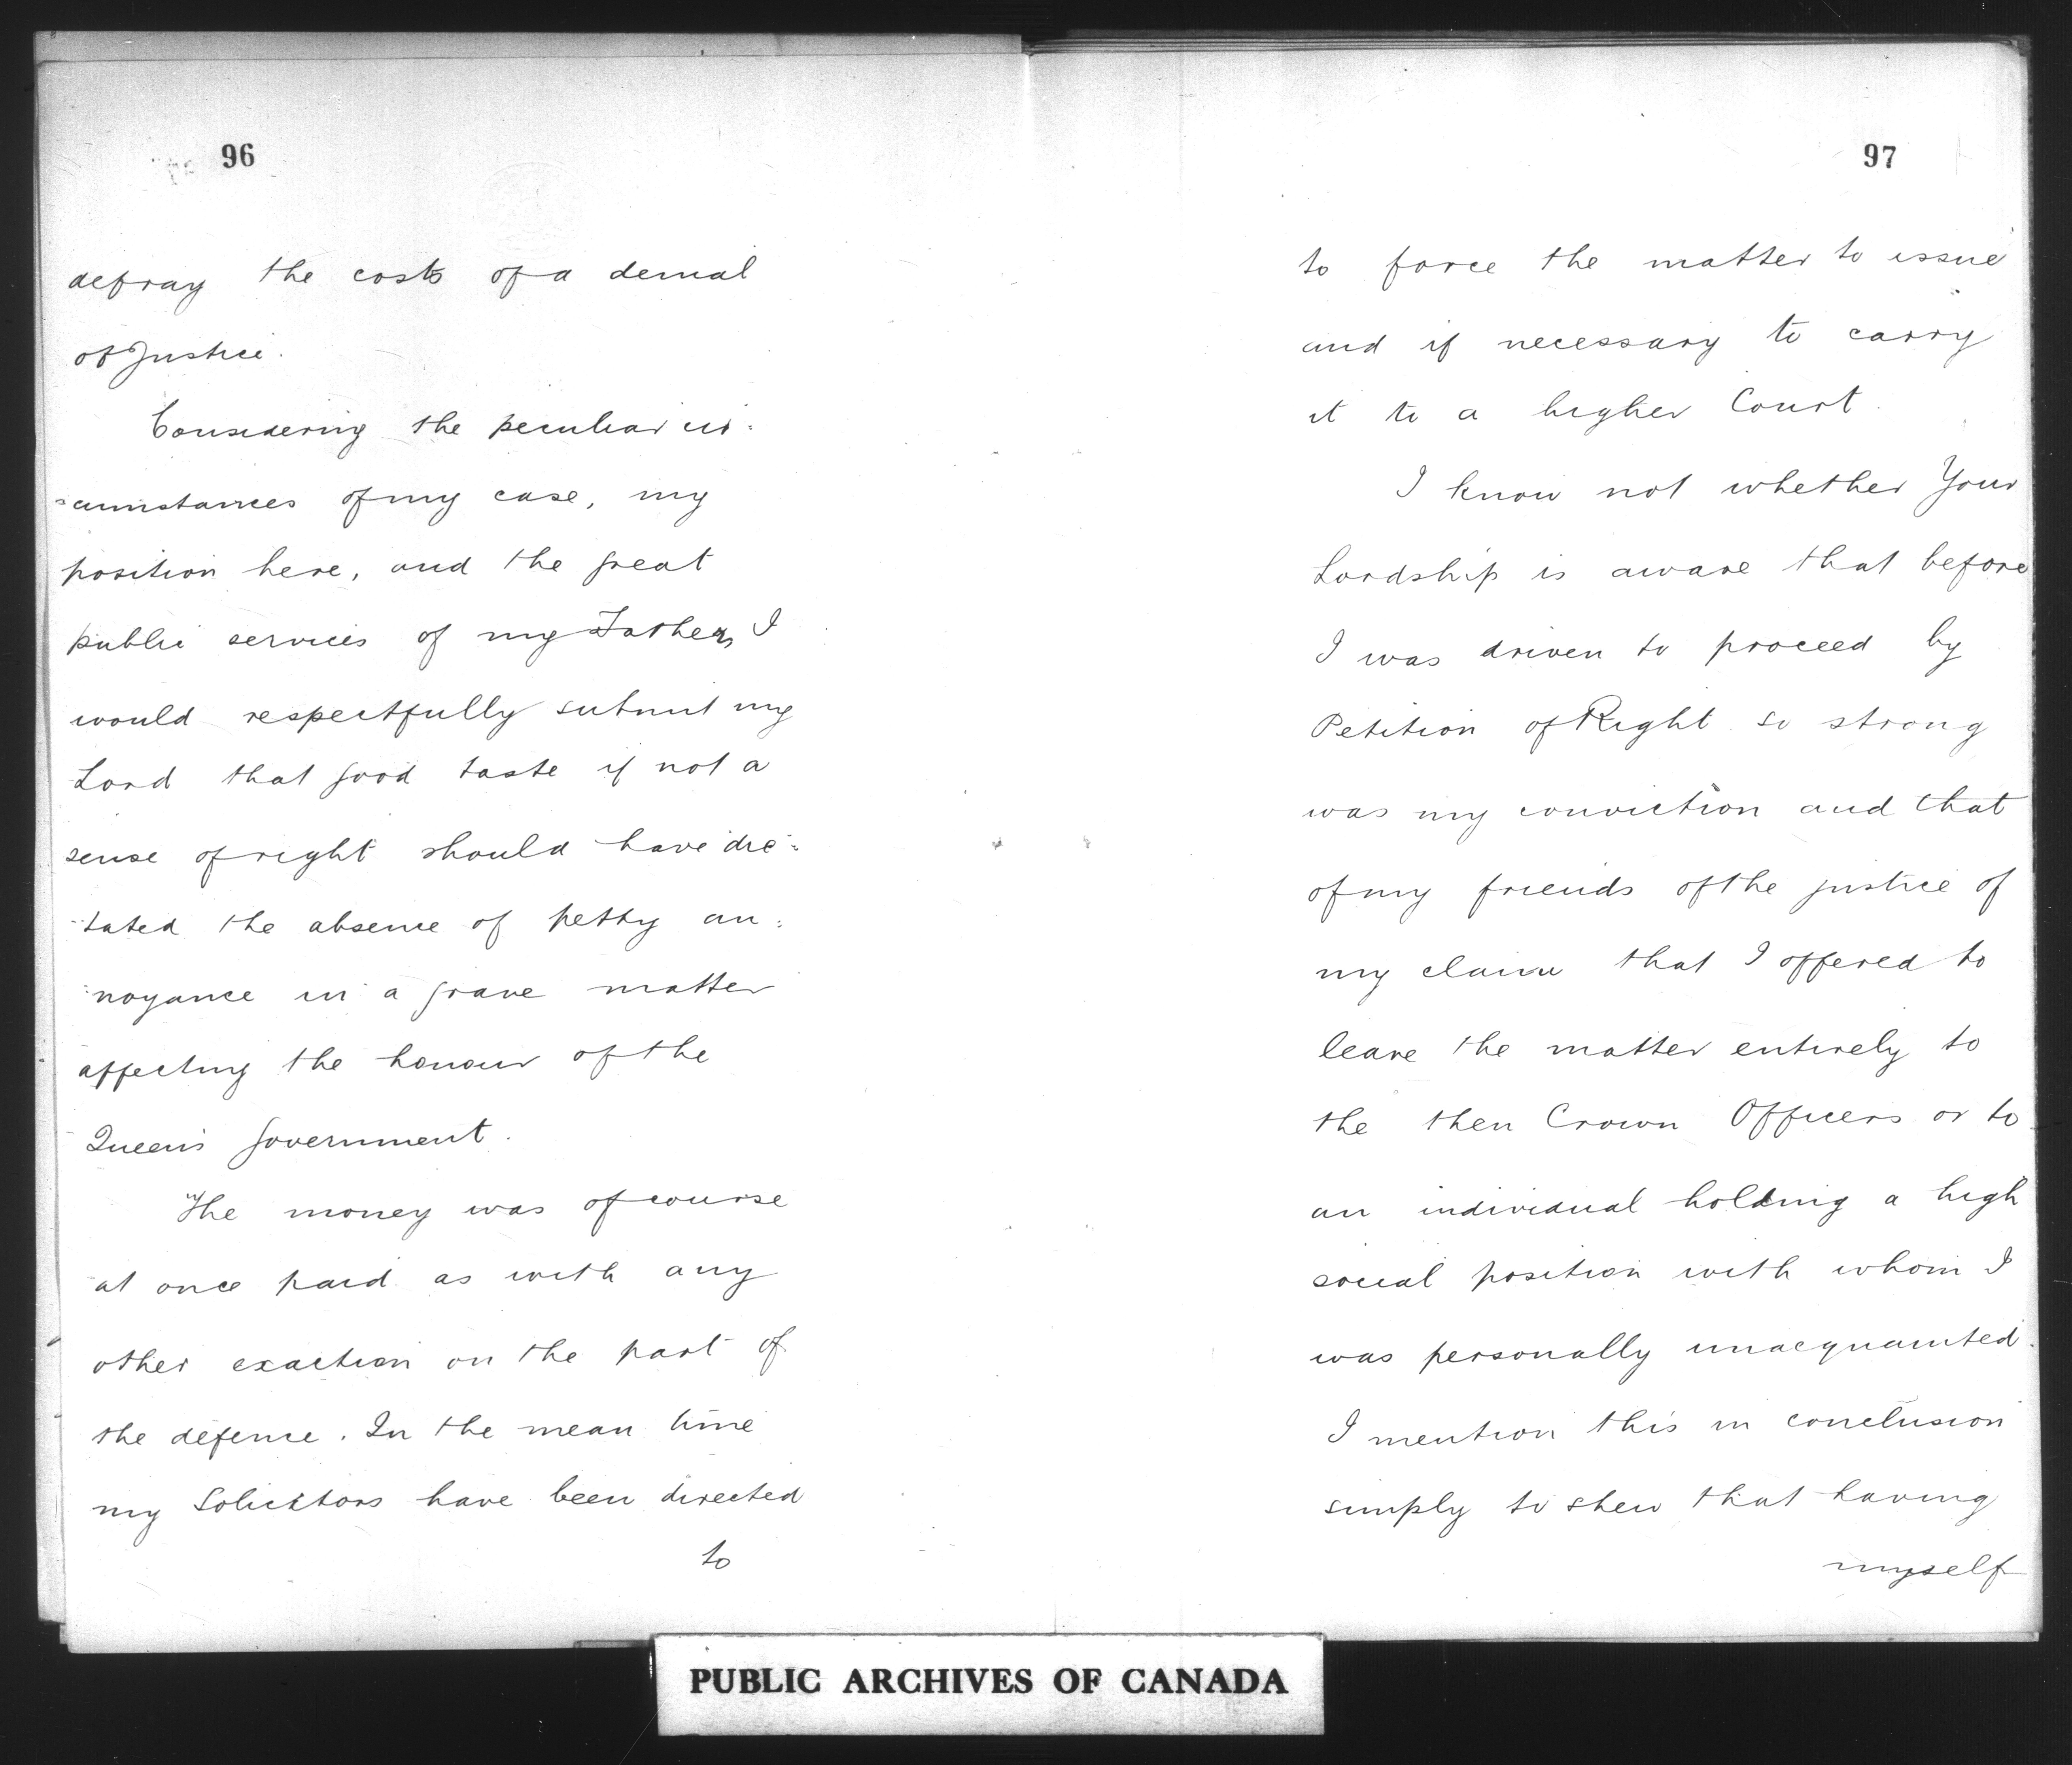 96
defray the costs of a denial
of Justice.
Considering the peculiar cir:
:cumstances of my case, my
position here, and the great
public services of my Father, I
would respectfully submit my
Lord that good taste if not a
sense of right should have dic:
:tated the absence of petty an:
:noyance in a grave matter
affecting the honour of the
Queen's Government.
The money was of course
at once paid as with any
other exaction on the part of
the defence. In the mean time
my Solicitors have been directed
to
97
to force the matter to issue
and if necessary to carry
it to a higher Court.
I know not whether Your
Lordship is aware that before
I was driven to proceed by
Petition of Right so strong
was my conviction and that
of my friends of the justice of
my claim that I offered to
leave the matter entirely to
the then Crown Officers or to
an individual holding a high
social position with whom I
was personally unacquainted.
I mention this in conclusion
simply to shew that having
myself
PUBLIC ARCHIVES OF CANADA